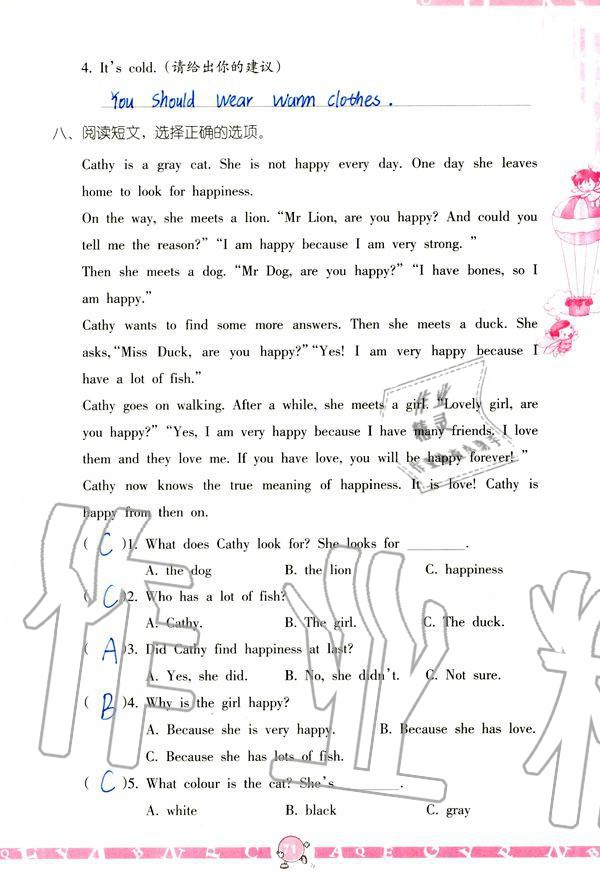 4. It's cold. (请给出你的建议)
You should wear warm clothes.
八、阅读短文，选择正确的选项。
Cathy is a gray cat. She is not happy every day. One day she leaves
home to look for happiness.
On the way, she meets a lion. “Mr Lion, are you happy? And could you
tell me the reason?” “I am happy because I am very strong. ”
Then she meets a dog. “Mr Dog, are you happy?” “I have bones, so I
am happy.”
Cathy wants to find some more answers. Then she meets a duck. She
asks, “Miss Duck, are you happy?” “Yes! I am very happy because I
have a lot of fish.”
Cathy goes on walking. After a while, she meets a girl. “Lovely girl, are
you happy?” “Yes, I am very happy because I have many friends. I love
them and they love me. If you have love, you will be happy forever! ”
Cathy now knows the true meaning of happiness. It is love! Cathy is
happy from then on.
( C )1. What does Cathy look for? She looks for ________.
A. the dog B. the lion C. happiness
( C )2. Who has a lot of fish?
A. Cathy. B. The girl. C. The duck.
( A )3. Did Cathy find happiness at last?
A. Yes, she did. B. No, she didn't. C. Not sure.
( B )4. Why is the girl happy?
A. Because she is very happy. B. Because she has love.
C. Because she has lots of fish.
( C )5. What colour is the cat? She's ________.
A. white B. black C. gray
71
作业精灵
作业